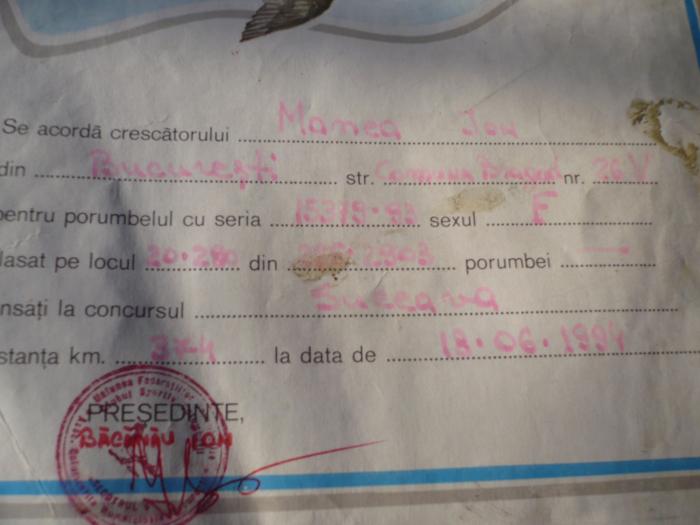 Se acordă crescătorului Manea Ion
din București str. nr. 26 V
pentru porumbelul cu seria 15379.92 sexul F
lasat pe locul 20.280 din 2803 porumbei —
nsați la concursul Suceava
stanța km. 374 la data de 18.06.1994
PREȘEDINTE,
BĂCANĂU ION